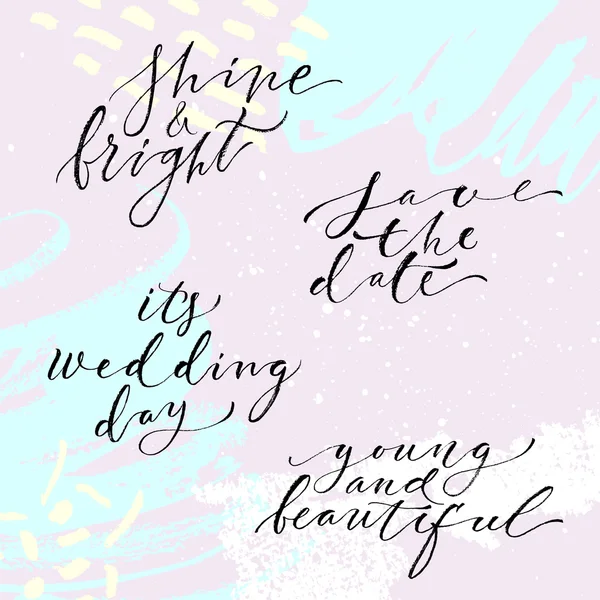 shine
&
bright
save
the
date
it's
wedding
day
young
and
beautiful